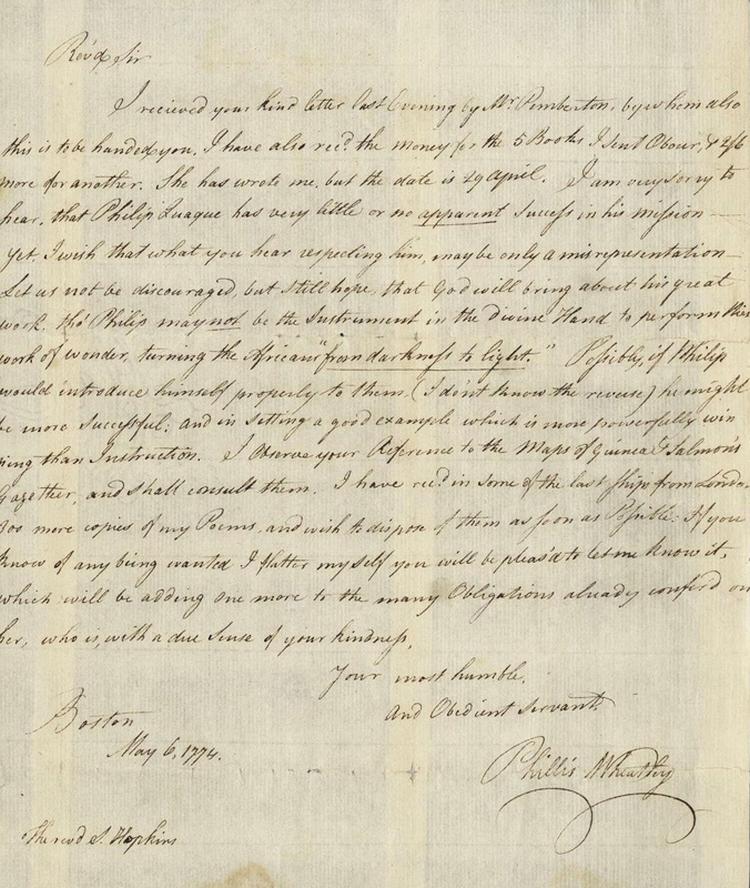 Rev'd Sir
I recieved your kind letter last Evening by Mr. Pemberton, by whom also
this is to be handed you. I have also rec'd. the money for the 5 Books I sent Obour, & 2/6
more for another. She has wrote me, but the date is 29 April. I am very sorry to
hear, that Philip Quaque has very little or no apparent Success in his mission—
Yet, I wish that what you hear respecting him, may be only a misrepresentation—
Let us not be discouraged, but still hope, that God will bring about his great
work, tho' Philip may not be the Instrument in the Divine Hand to perform this
work of wonder, turning the Africans "from darkness to light." Possibly, if Philip
would introduce himself properly to them, (I don't know the reverse) he might
be more Successful; and in setting a good example which is more powerfully win
ning than Instruction. I Observe your Reference to the Maps of Guinea & Salmon's
Gazetteer, and shall consult them. I have rec'd in some of the last ships from London
300 more copies of my Poems, and wish to dispose of them as soon as Possible: If you
know of any being wanted I flatter myself you will be pleas'd to let me know it,
which will be adding one more to the many Obligations already confer'd on
her, who is, with a due Sense of your kindness,
Your most humble,
And Obedient servant
Boston
May 6, 1774.
Phillis Wheatley
The revd S. Hopkins